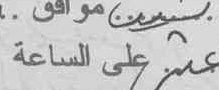 موافق ..
عشر على الساعة